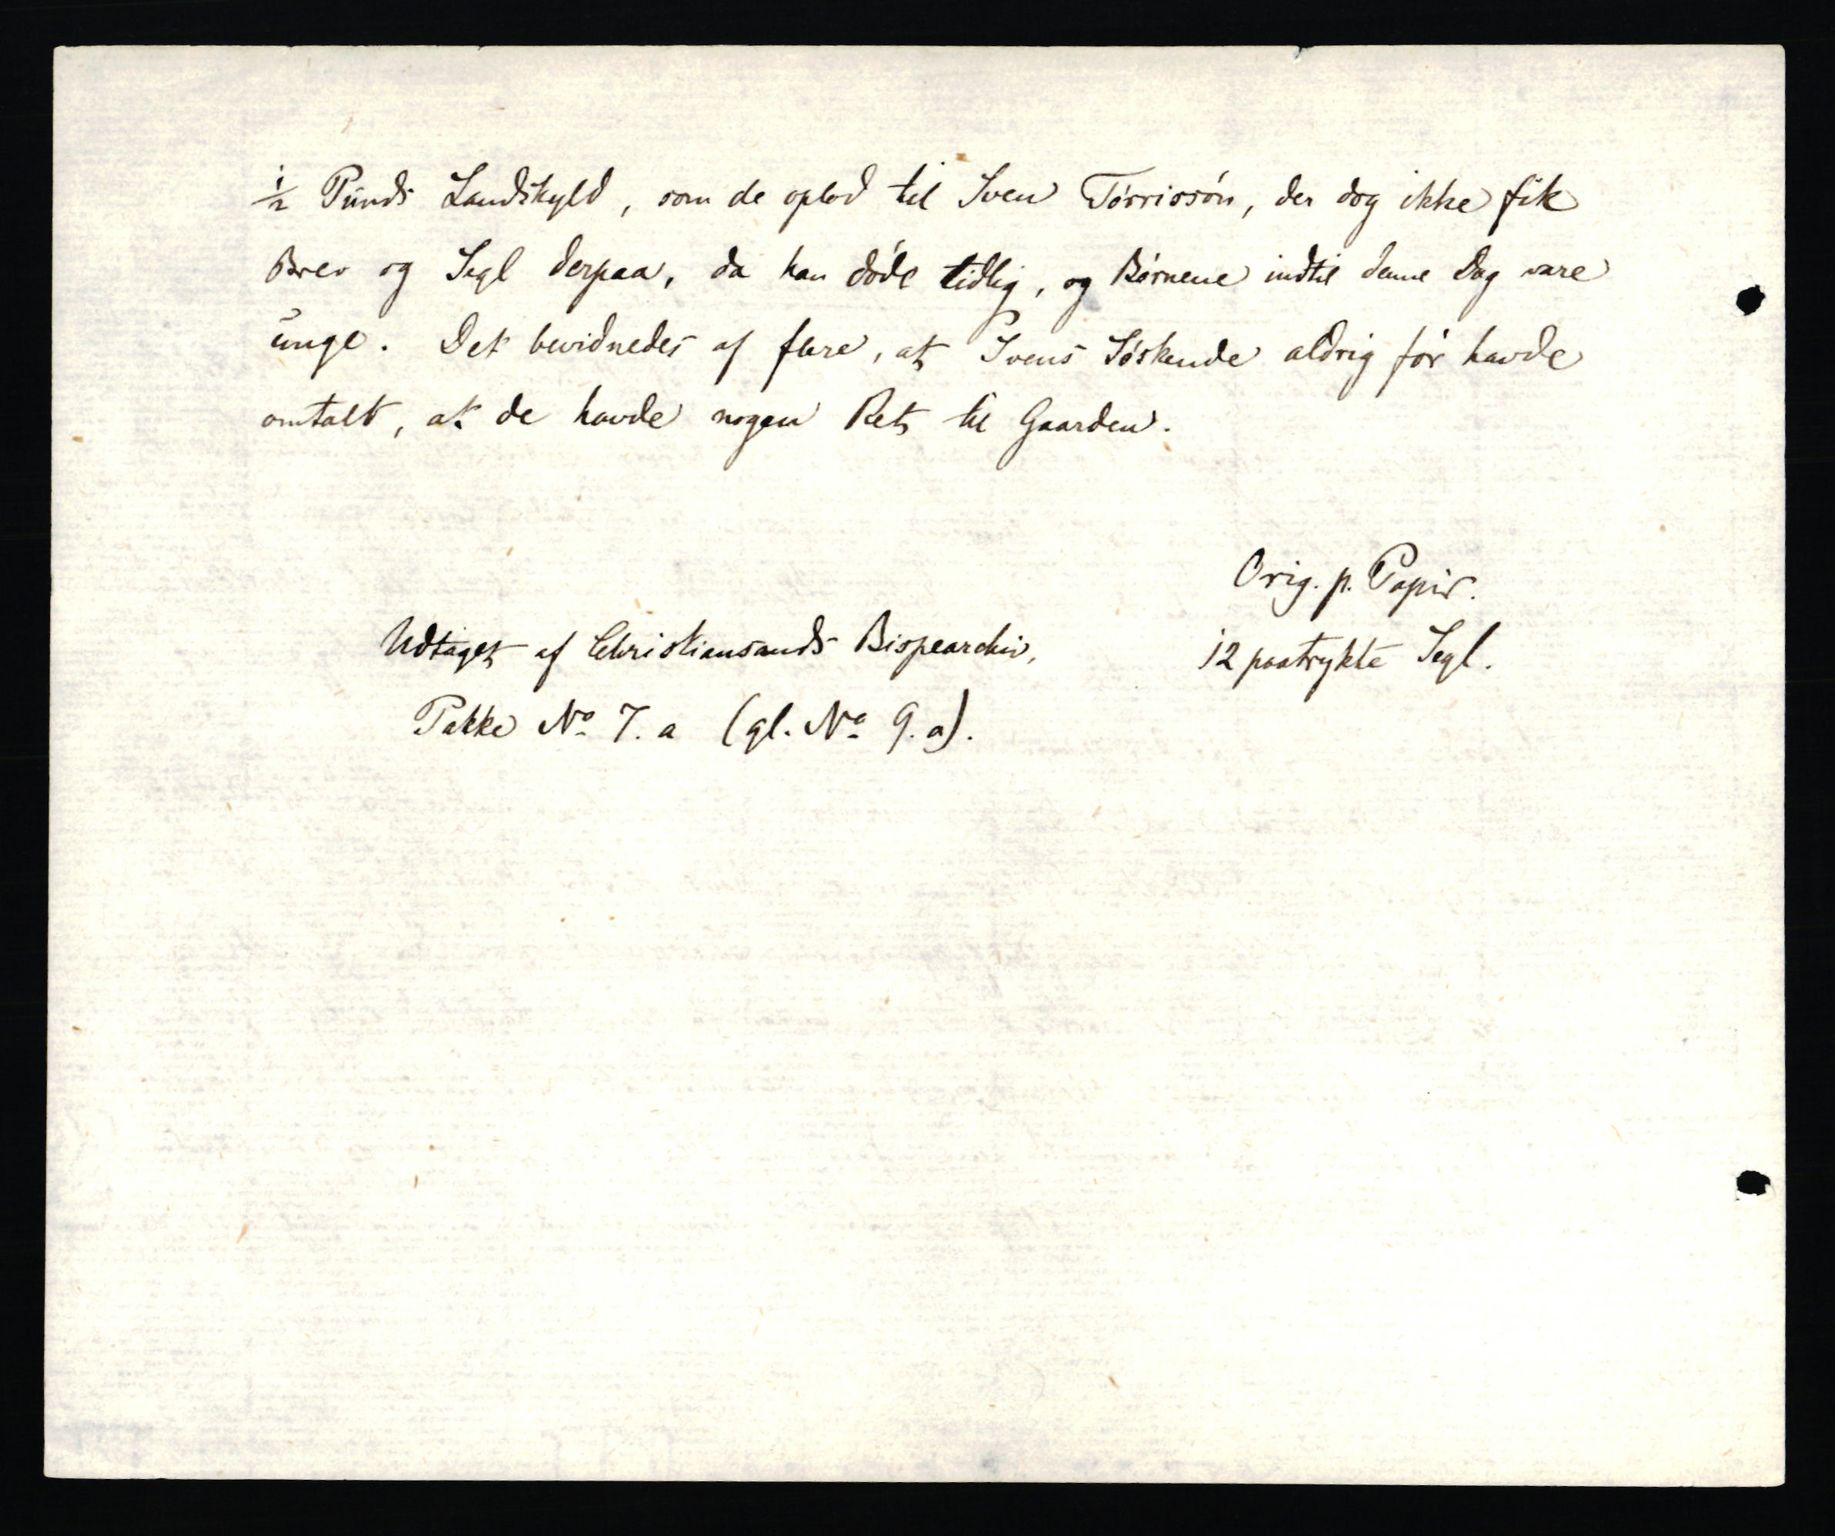 1/2 Punds Landskyld, som de oplod til Sven Tørrissøn, der dog ikke fik
Brev og Segl derpaa, da han døde tidlig, og Børnene indtil denne Dag vare
unge. Det bevidnedes af flere, at Svens Søskende aldrig før havde
omtalt, at de havde nogen Ret til Gaarden.
Orig. p. Papir.
12 paatrykte Segl.
Udtaget af Christiansands Bispearchiv,
Pakke No 7. a (gl. No 9. a).